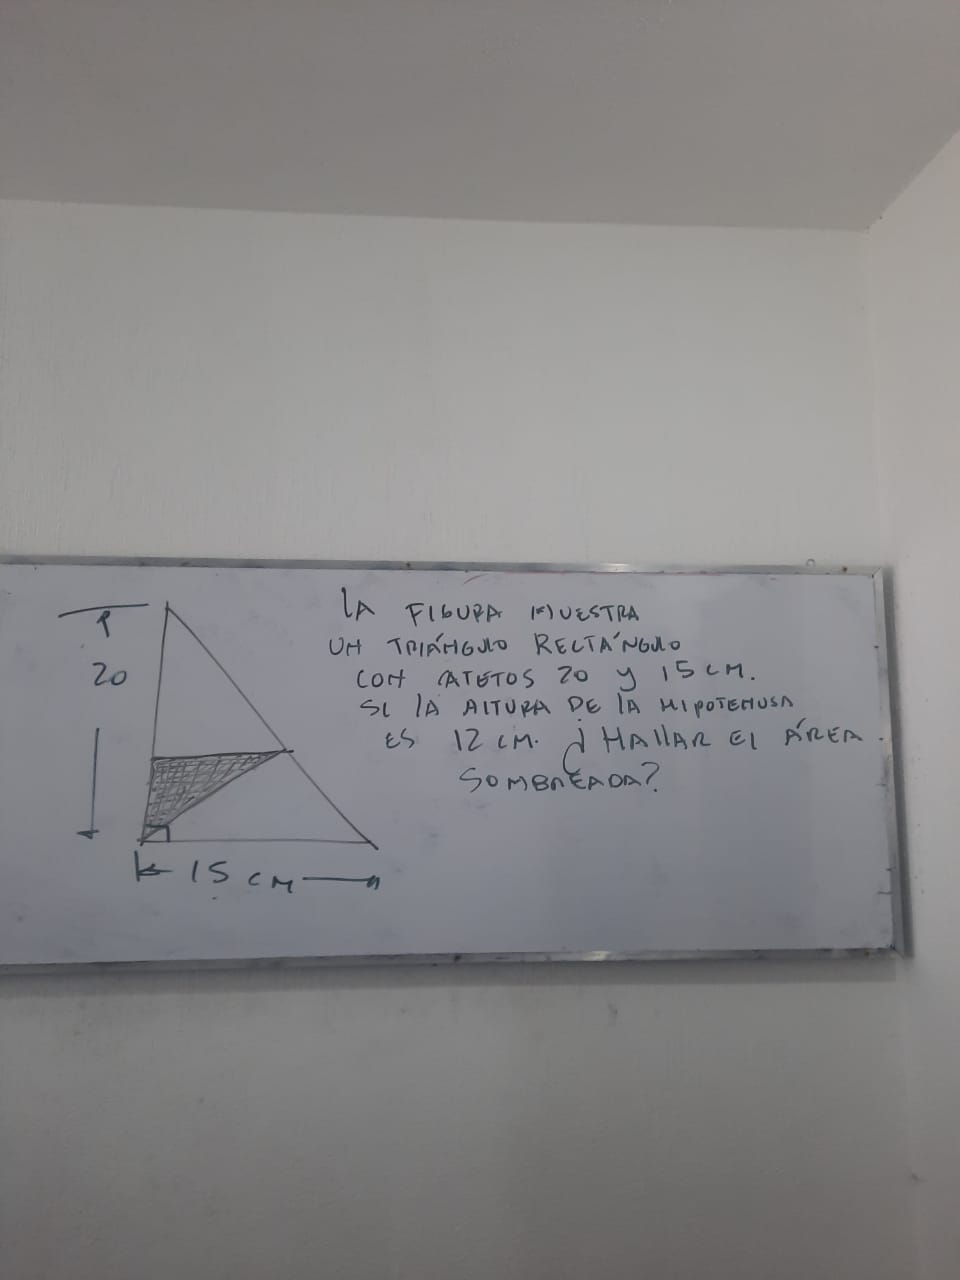 LA FIGURA MUESTRA
UN TRIÁNGULO RECTÁNGULO
CON CATETOS 20 y 15 CM.
SI LA ALTURA DE LA HIPOTENUSA
ES 12 CM. ¿HALLAR EL ÁREA
SOMBREADA?
20
15 CM